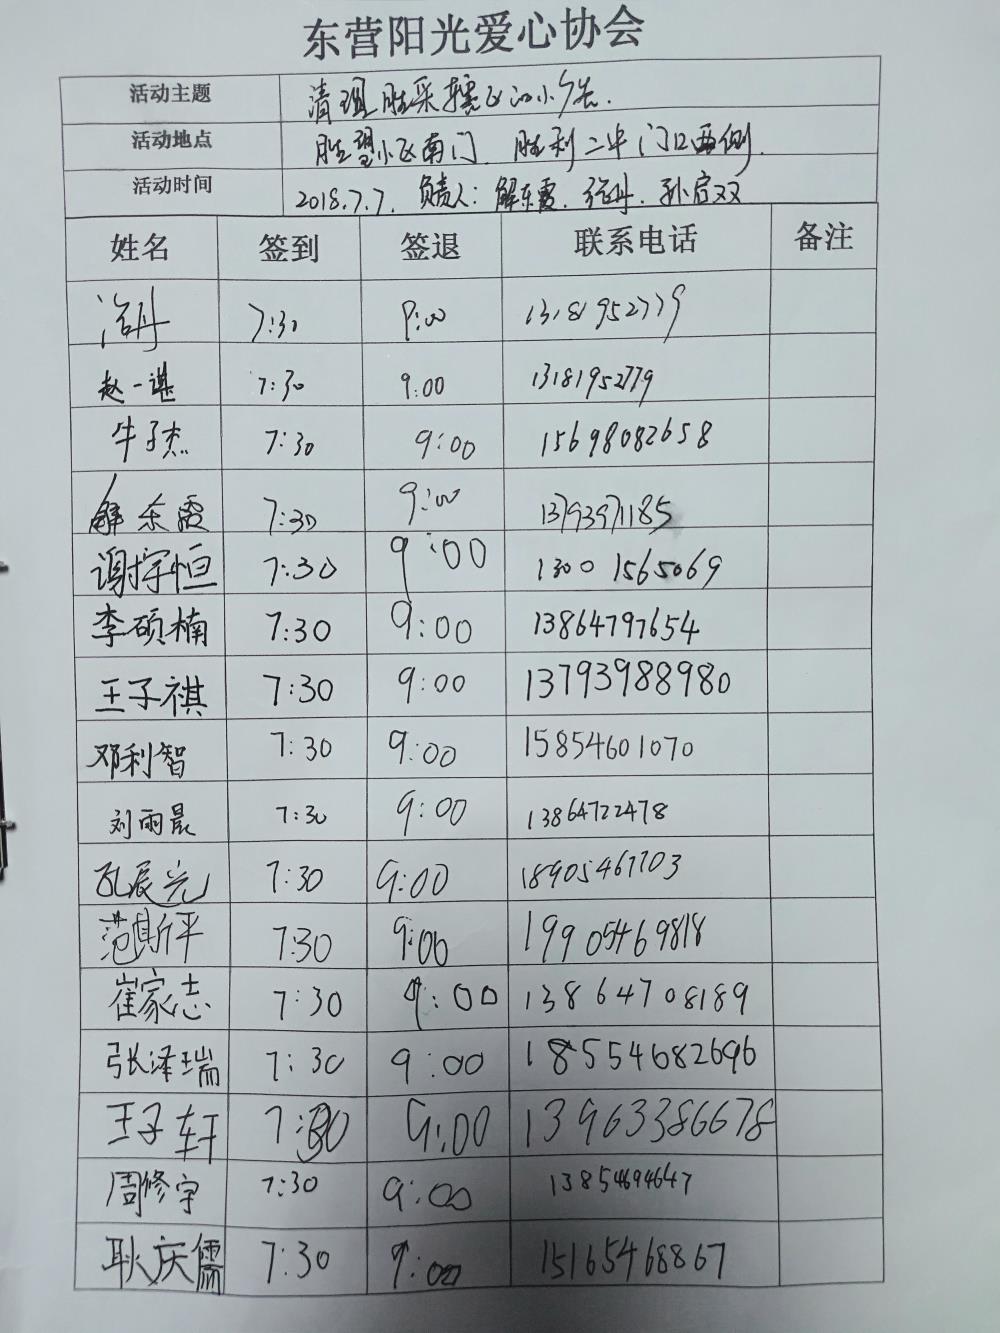 东营阳光爱心协会
活动主题 清理胜采辖区的小广告.
活动地点 胜望小区南门、胜利二中门口西侧.
活动时间 2018.7.7. 负责人:解东霞. 丹. 孙启双
姓名 签到 签退 联系电话 备注
丹 7:30 9:00 13181952779
赵一谌 7:30 9:00 13181952779
牛子杰 7:30 9:00 15698082658
解东霞 7:30 9:00 13793971185
谢宇恒 7:30 9:00 13001565069
李硕楠 7:30 9:00 13864797654
王子祺 7:30 9:00 13793988980
邓利智 7:30 9:00 15854601070
刘雨晨 7:30 9:00 13864722478
孔辰光 7:30 9:00 18905467703
范斯平 7:30 9:00 19905469818
崔家志 7:30 9:00 13864708189
张泽瑞 7:30 9:00 18554682696
王子轩 7:30 9:00 13963386678
周修宇 7:30 9:00 13854694647
耿庆儒 7:30 9:00 15165468867